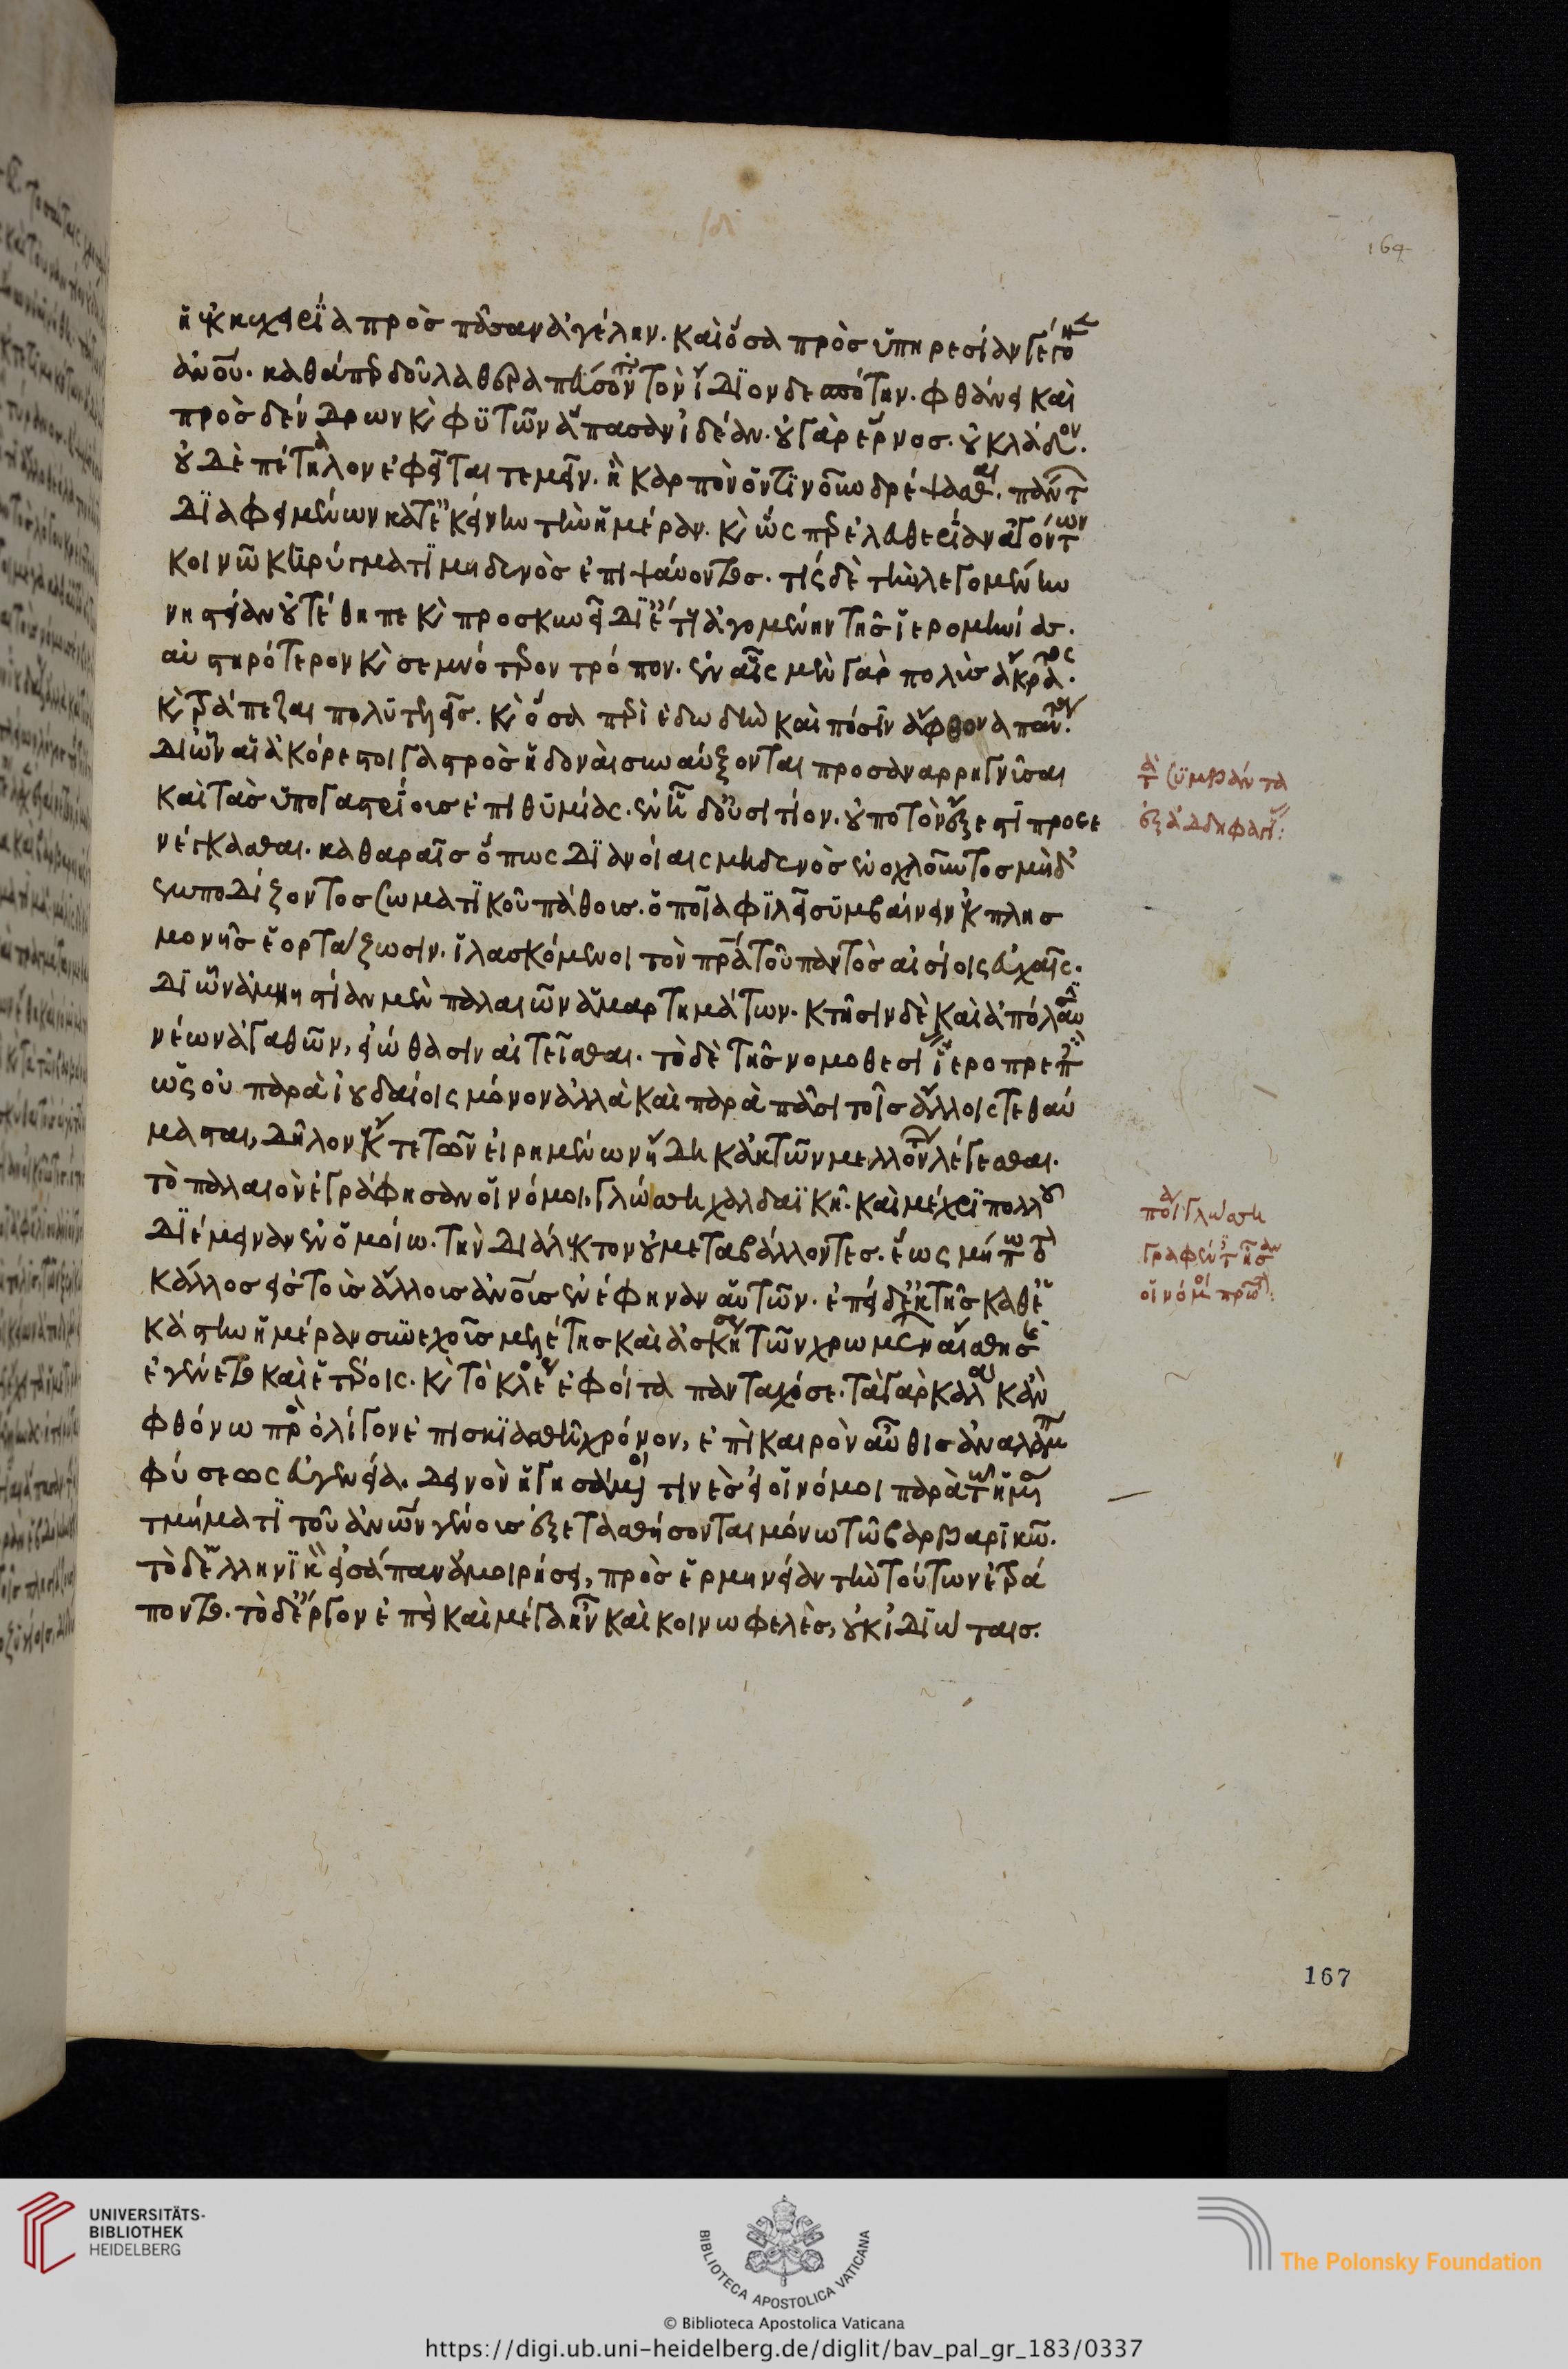 ἡ ἐκεχειρία πρὸς πᾶσαν ἀγέλην. καὶ ὅσα πρὸς ὑπηρεσίαν γέγονεν
ἀνου. καθάπερ δοῦλα θεραπεύοντα τὸν ἴδιον δεσπότην. φθάνει καὶ
πρὸς δένδρων κ φυτῶν ἅπασαν ἰδέαν. οὐ γὰρ ἔρνος. οὐ κλάδον.
οὐδὲ πέταλον ἐφεῖται τεμεῖν. ἢ καρπὸν ὁντινοῦν δρέψασθαι. πάντων
διαφειμένων κατ' ἐκείνην τὴν ἡμέραν. κ ὥσπερ ἐλευθερίαν ἀγόντων
κοινῶ κηρύγματι μηδενὸς ἐπιψαύοντος. τίς δὲ τὴν λεγομένην
νηστείαν οὐ τέθηπε κ προσκυνεῖ δι' ἔτους ἀγομένην τῆς ἱερομηνίας.
αὐστηρότερον κ σεμνότερον τρόπον. ἐν αἷς μὲν γὰρ πολὺς ἄκρατος.
κ τράπεζαι πολυτελεῖς. κ ὅσα περὶ ἐδωδὴν καὶ πόσιν ἄφθονα πάντα.
δι ὧν αἱ ἀκόρεστοι γαστρὸς ἡδοναὶ συναύξονται προσαναρρηγνῦσαι
καὶ τὰς ὑπογαστρίους ἐπιθυμίας. ἐν ἧ δ' οὐ σιτίον. οὐ ποτὸν ἔξεστι προσε
νέγκασθαι. καθαραῖς ὅπως διανοίαις μηδενὸς ἐνοχλοῦντος μηδ'
ἐμποδίζοντος σωματικοῦ πάθους. ὁποῖα φιλεῖ συμβαίνειν ἐκ πλησ
μονῆς ἑορτάζωσιν. ἱλασκόμενοι τὸν πρα τοῦ παντὸς αἰσίοις εὐχαῖς.
δι ὧν ἀμνηστίαν μὲν παλαιῶν ἁμαρτημάτων. κτῆσιν δὲ καὶ ἀπόλαυσιν
νέων ἀγαθῶν, εἰώθασιν αἰτεῖσθαι. τὸ δὲ τῆς νομοθεσίας ἱεροπρεπὲς
ὡς οὐ παρὰ ἰουδαίοις μόνον ἀλλὰ καὶ παρὰ πᾶσι τοῖς ἄλλοις τεθαύ
μασται, δῆλον ἔκ τε τῶν εἰρημένων ἤδη κἀκ τῶν μελλόντων λέγεσθαι.
τὸ παλαιὸν ἐγράφησαν οἱ νόμοι, γλώσση χαλδαϊκῆ. καὶ μέχρι πολλοῦ
διέμειναν ἐν ὁμοίω. τὴν διάλεκτον οὐ μεταβάλλοντες. ἕως μήπω τὸ
κάλλος εἰς τοὺς ἄλλους ἀνους ἐνέφηναν αὐτῶν. ἐπεὶ δὲ ἐκ τῆς καθ' ἑ
κάστην ἡμέραν συνεχοῦς μελέτης καὶ ἀσκήσεως τῶν χρωμένων αἴσθησις
ἐγένετο καὶ ἑτέροις. κ τὸ κλέος ἐφοίτα πανταχόσε. τὰ γὰρ καλὰ κἂν
φθόνω πρὸς ὀλίγον ἐπισκιασθῆ χρόνον, ἐπὶ καιρὸν αὖθις ἀναλάμπει
φύσεως εὐμενεία. δεινὸν ἡγησάμενοί τινες εἰ οἱ νόμοι παρὰ τῶ ἡμίσει
τμήματι τοῦ ἀνων γένους ἐξετασθήσονται μόνω τῶ βαρβαρικῶ.
τὸ δ' ἑλληνικὸν εἰσάπαν ἀμοιρήσει, πρὸς ἑρμηνείαν τὴν τούτων ἐτρά
ποντο. τὸ δ' ἔργον ἐπεὶ καὶ μέγα ἦν καὶ κοινωφελὲς, οὐκ ἰδιώταις.
τὰ συμβαίνοντα
ἐξ ἀδηφαγίας:
ποία γλώσση
γραφέντες ἦσαν
οἱ νόμοι πρῶτον:
164
167
UNIVERSITÄTS-
BIBLIOTHEK
HEIDELBERG
BIBLIOTECA APOSTOLICA VATICANA
The Polonsky Foundation
© Biblioteca Apostolica Vaticana
https://digi.ub.uni-heidelberg.de/diglit/bav_pal_gr_183/0337